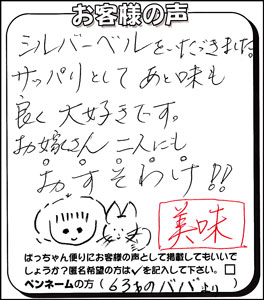 お客様の声
シルバーベルをいただきました。
サッパリとして あと味も
良く 大好きです。
お嫁さん 二人にも
おすそわけ!!
美味
ばっちゃん便りにお客様の声として掲載してもいいで
しょうか?匿名希望の方は✓を記入して下さい。□
ペンネームの方 (63才のババより)